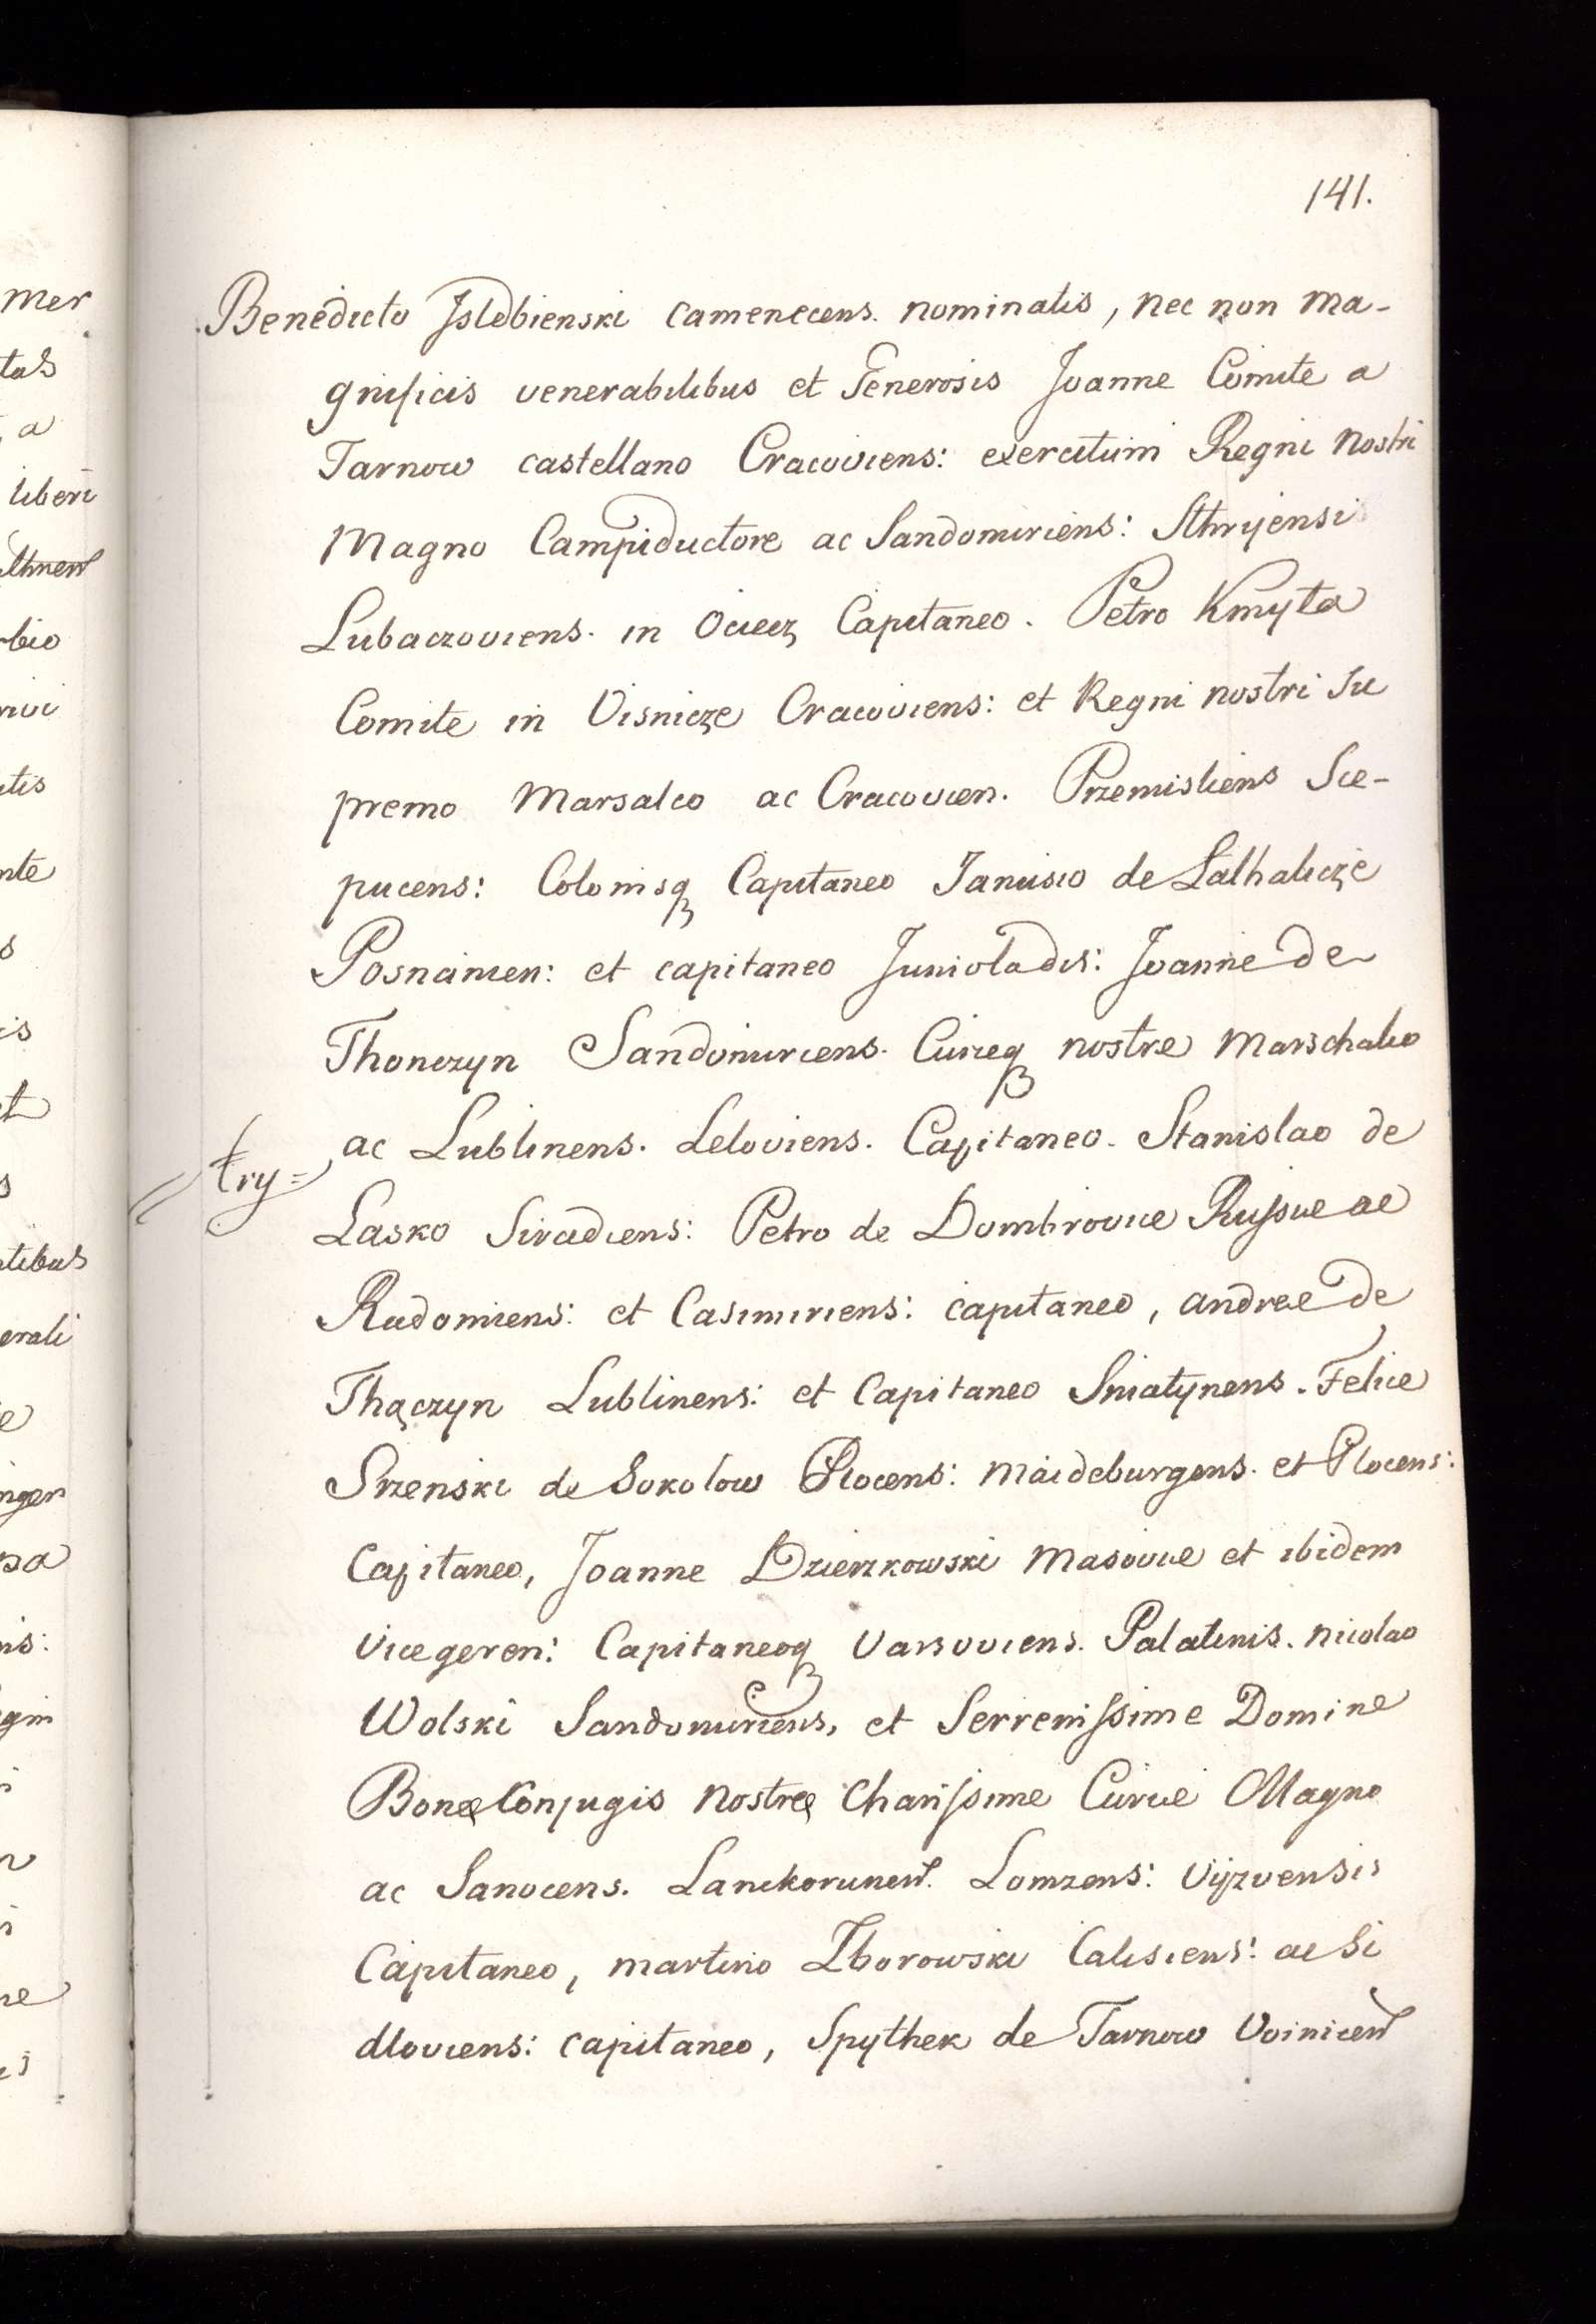 141.
Benedicto Jsldbienski camenecens. nominatis, nec non ma-
gnificis venerabilibus et Generosis Joanne Comite a
Tarnow castellano Cracoviens: exercituum Regni nostri
Magno Campiductore ac Sandomiriens: Sthryensi
Lubaczoviens. in Ociecz Capitaneo. Petro Kmyta
Comite in Visnicze Cracoviens: et Regni nostri Su
premo Marsalco ac Cracovien. Przemisliens Sce-
pucens: Colonisq Capitaneo Janusio de Lathalicze
Posnanien: et capitaneo Junivladis: Joanne de
Thonczyn Sandomiriens. Curieq nostre Marschalco
ac Lublinens. Leloviens. Capitaneo. Stanislao de
try=
Lasko Siradiens: Petro de Dombrovice Russie ac
Radomiens: et Casimiriens: capitaneo, andree de
Thączyn Lublinens: et Capitaneo Sniatynens. Felice
Srzenski de Sokolow Plocens: maideburgens. et Plocens:
Capitaneo, Joanne Dzierzkowski Masovie et ibidem
Vicegeren: Capitaneoq Varsoviens. Palatinis. nicolao
Wolski Sandomiriens, et Serrenissime Domine
Bonæ Conjugis nostræ Charissime Curie Magno
ac Sanocens. Lanckorunen. Lomzens: Vyzvensis
Capitaneo, martino Zborowski Calisiens: ac Si
dloviens: capitaneo, Spythek de Tarnow Voinicen
mer
tas
a
liberi
rbio
nte
is
et
tibus
erali
nger